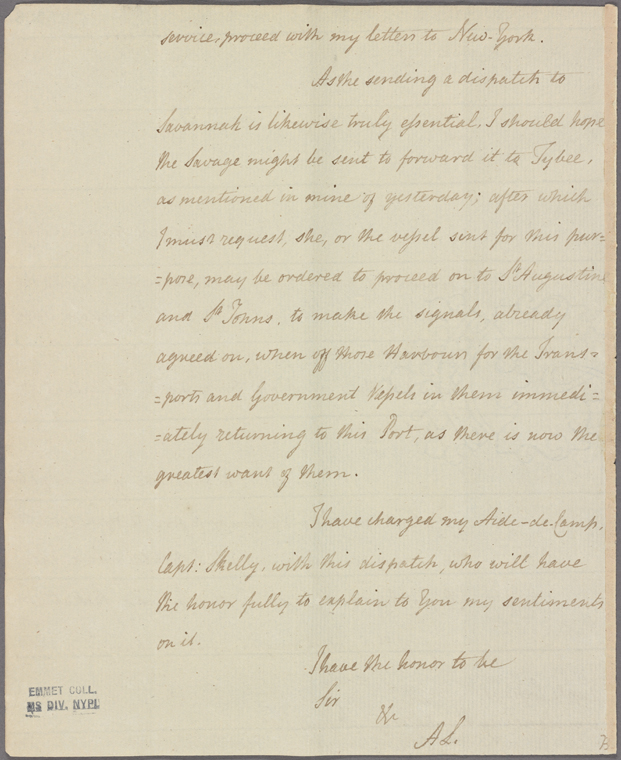 service, proceed with my letters to New-York.
As the sending a dispatch to
Savannah is likewise truly essential, I should hope
the Savage might be sent to forward it to Tybee,
as mentioned in mine of yesterday; after which
I must request, she, or the vessel sent for this pur=
=pose, may be ordered to proceed on to St. Augustine
and St. Johns, to make the signals, already
agreed on, when off those Harbours for the Trans=
=ports and Government Vessels in them immedi=
=ately returning to this Port, as there is now the
greatest want of them.
I have charged my Aide-de-Camp,
Capt: Skelly, with this dispatch, who will have
the honor fully to explain to You my sentiments
on it.
I have the honor to be
Sir
&c
A L.
EMMET COLL.
MS DIV. NYPL